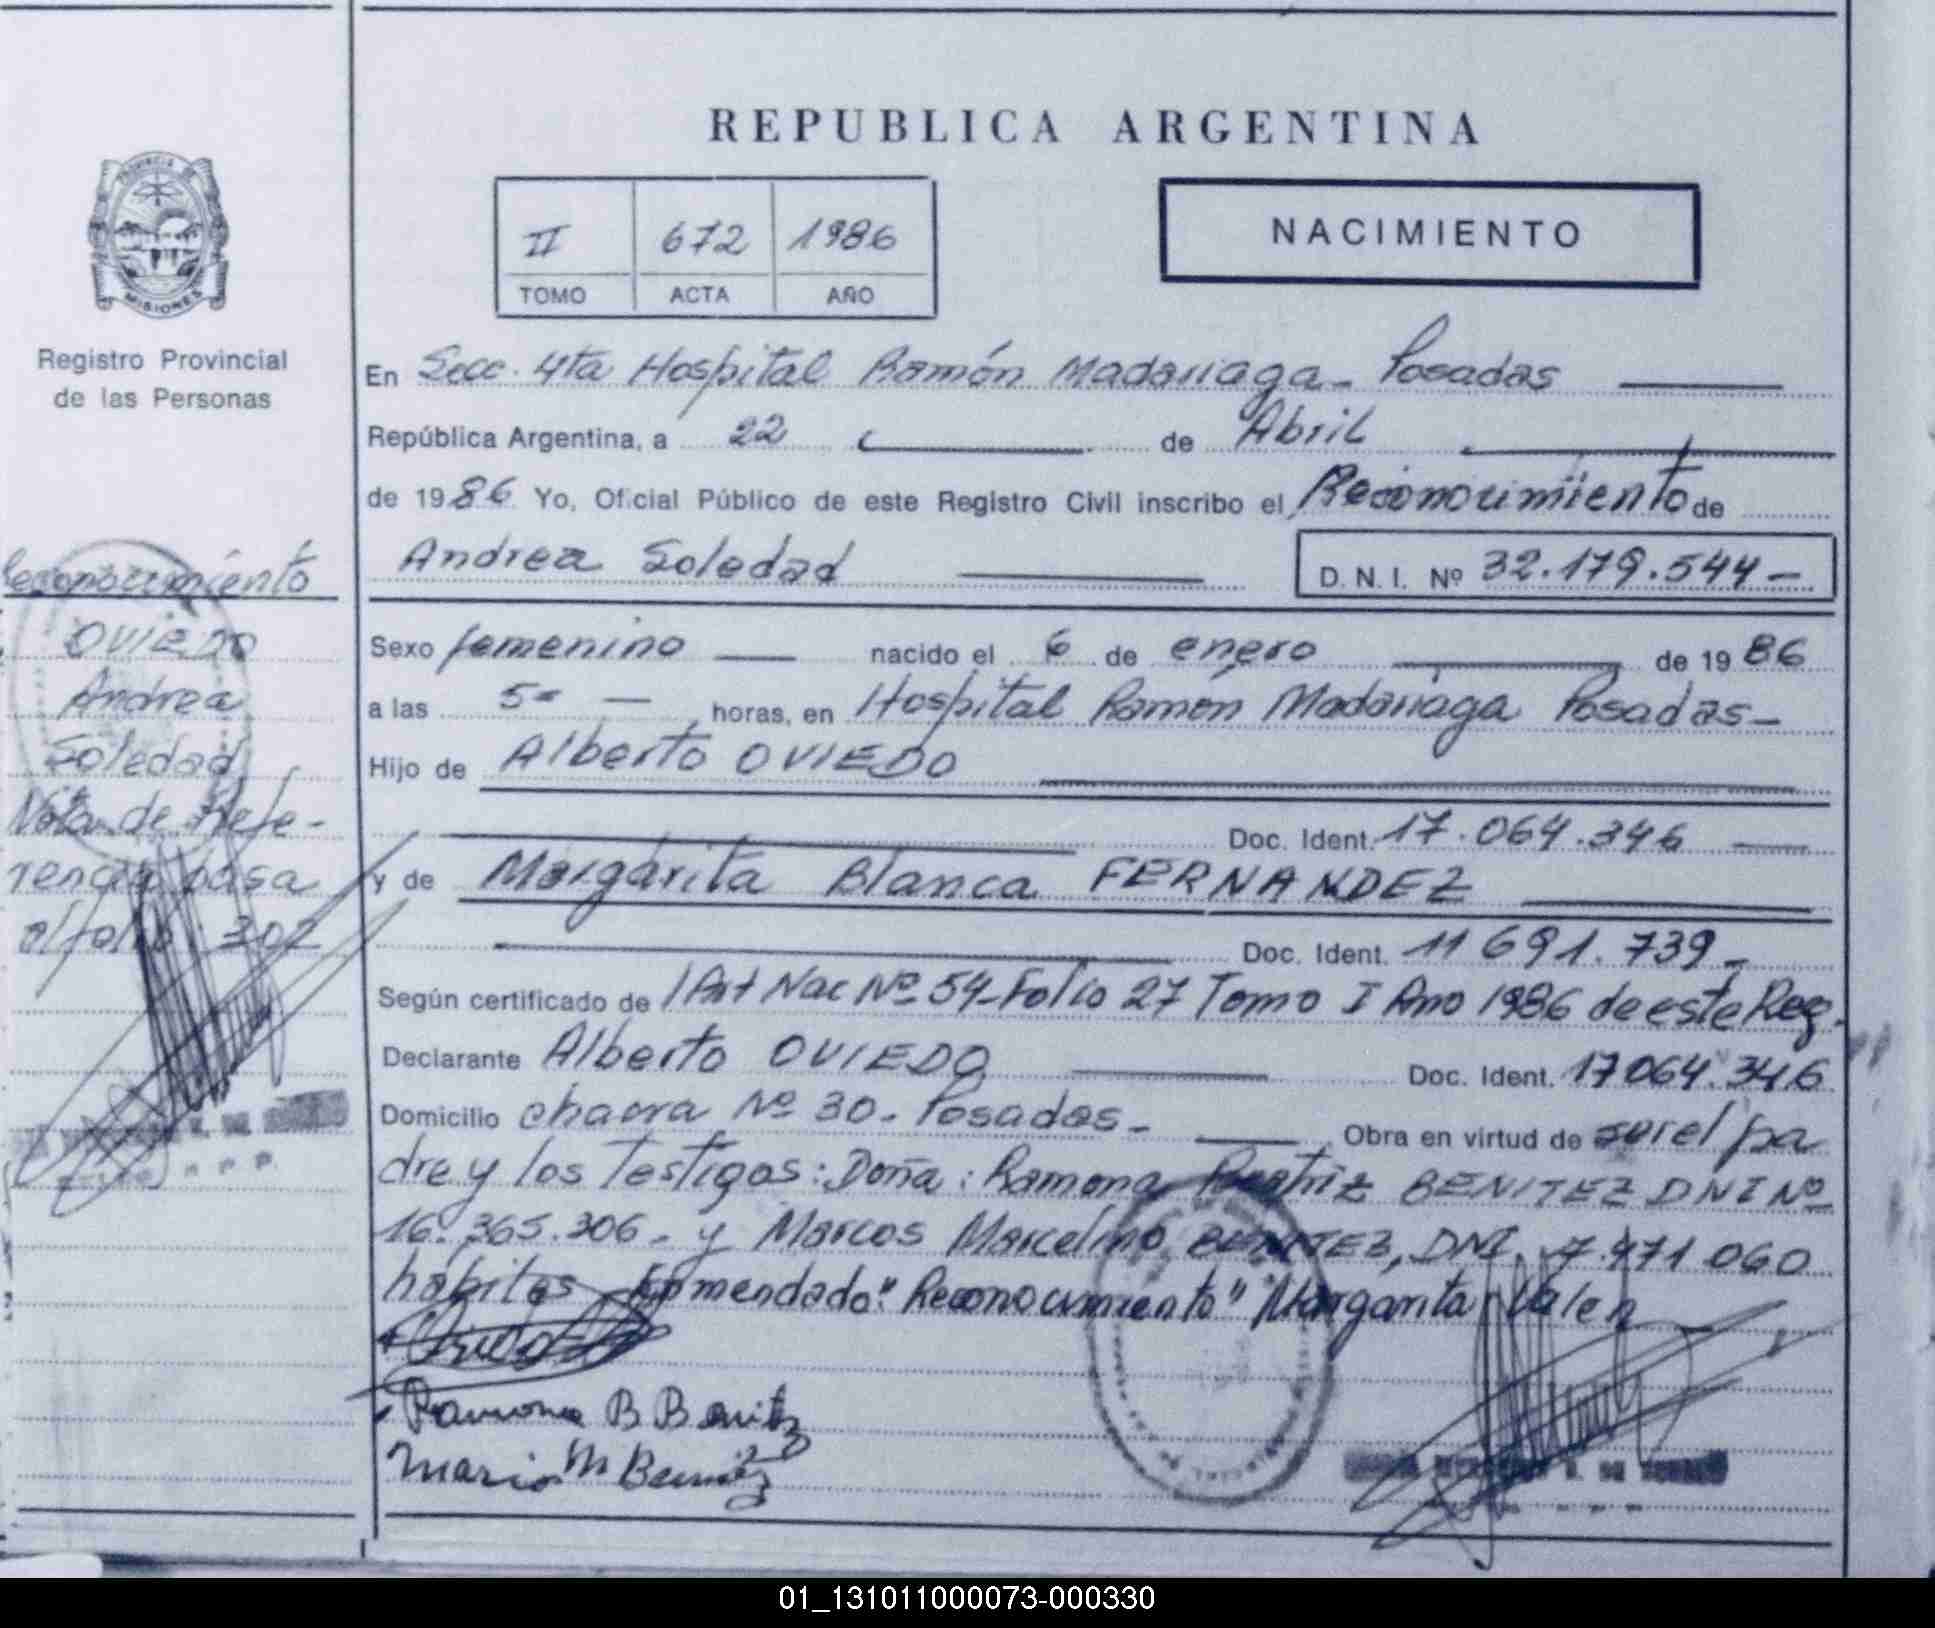 REPUBLICA ARGENTINA
II 672 1986
TOMO ACTA AÑO
NACIMIENTO
PROVINCIA DE
MISIONES
Registro Provincial
de las Personas
En Secc. 4ta Hospital Ramón Madariaga - Posadas
República Argentina, a 22 de Abril
de 1986 Yo, Oficial Público de este Registro Civil inscribo el Reconocimiento de
Andrea Soledad D. N. I. Nº 32.179.544 -
Sexo femenino nacido el 6 de enero de 1986
a las 5 horas, en Hospital Ramón Madariaga Posadas -
Hijo de Alberto OVIEDO
Doc. Ident. 17.064.346
y de Margarita Blanca FERNANDEZ
Doc. Ident. 11 691.739 -
Según certificado de Nac Nº 54 - Folio 27 Tomo I Ano 1986 de este Reg.
Declarante Alberto OVIEDO Doc. Ident. 17064.346
Domicilio chacra Nº 30 - Posadas - Obra en virtud de ser el pa
dre y los testigos: Doña: Ramona Beatriz BENITEZ DNI Nº
16.365.306 - y Marcos Marcelino BENITEZ, DNI 7.471 060
hábiles - Enmendado: "Reconocimiento" "Margarita" Valen
Ramona B Benitez
M Benitez
Reconocimiento
OVIEDO
Andrea
Soledad
Nota de Refe-
rencia pasa
al folio 302
01_131011000073-000330